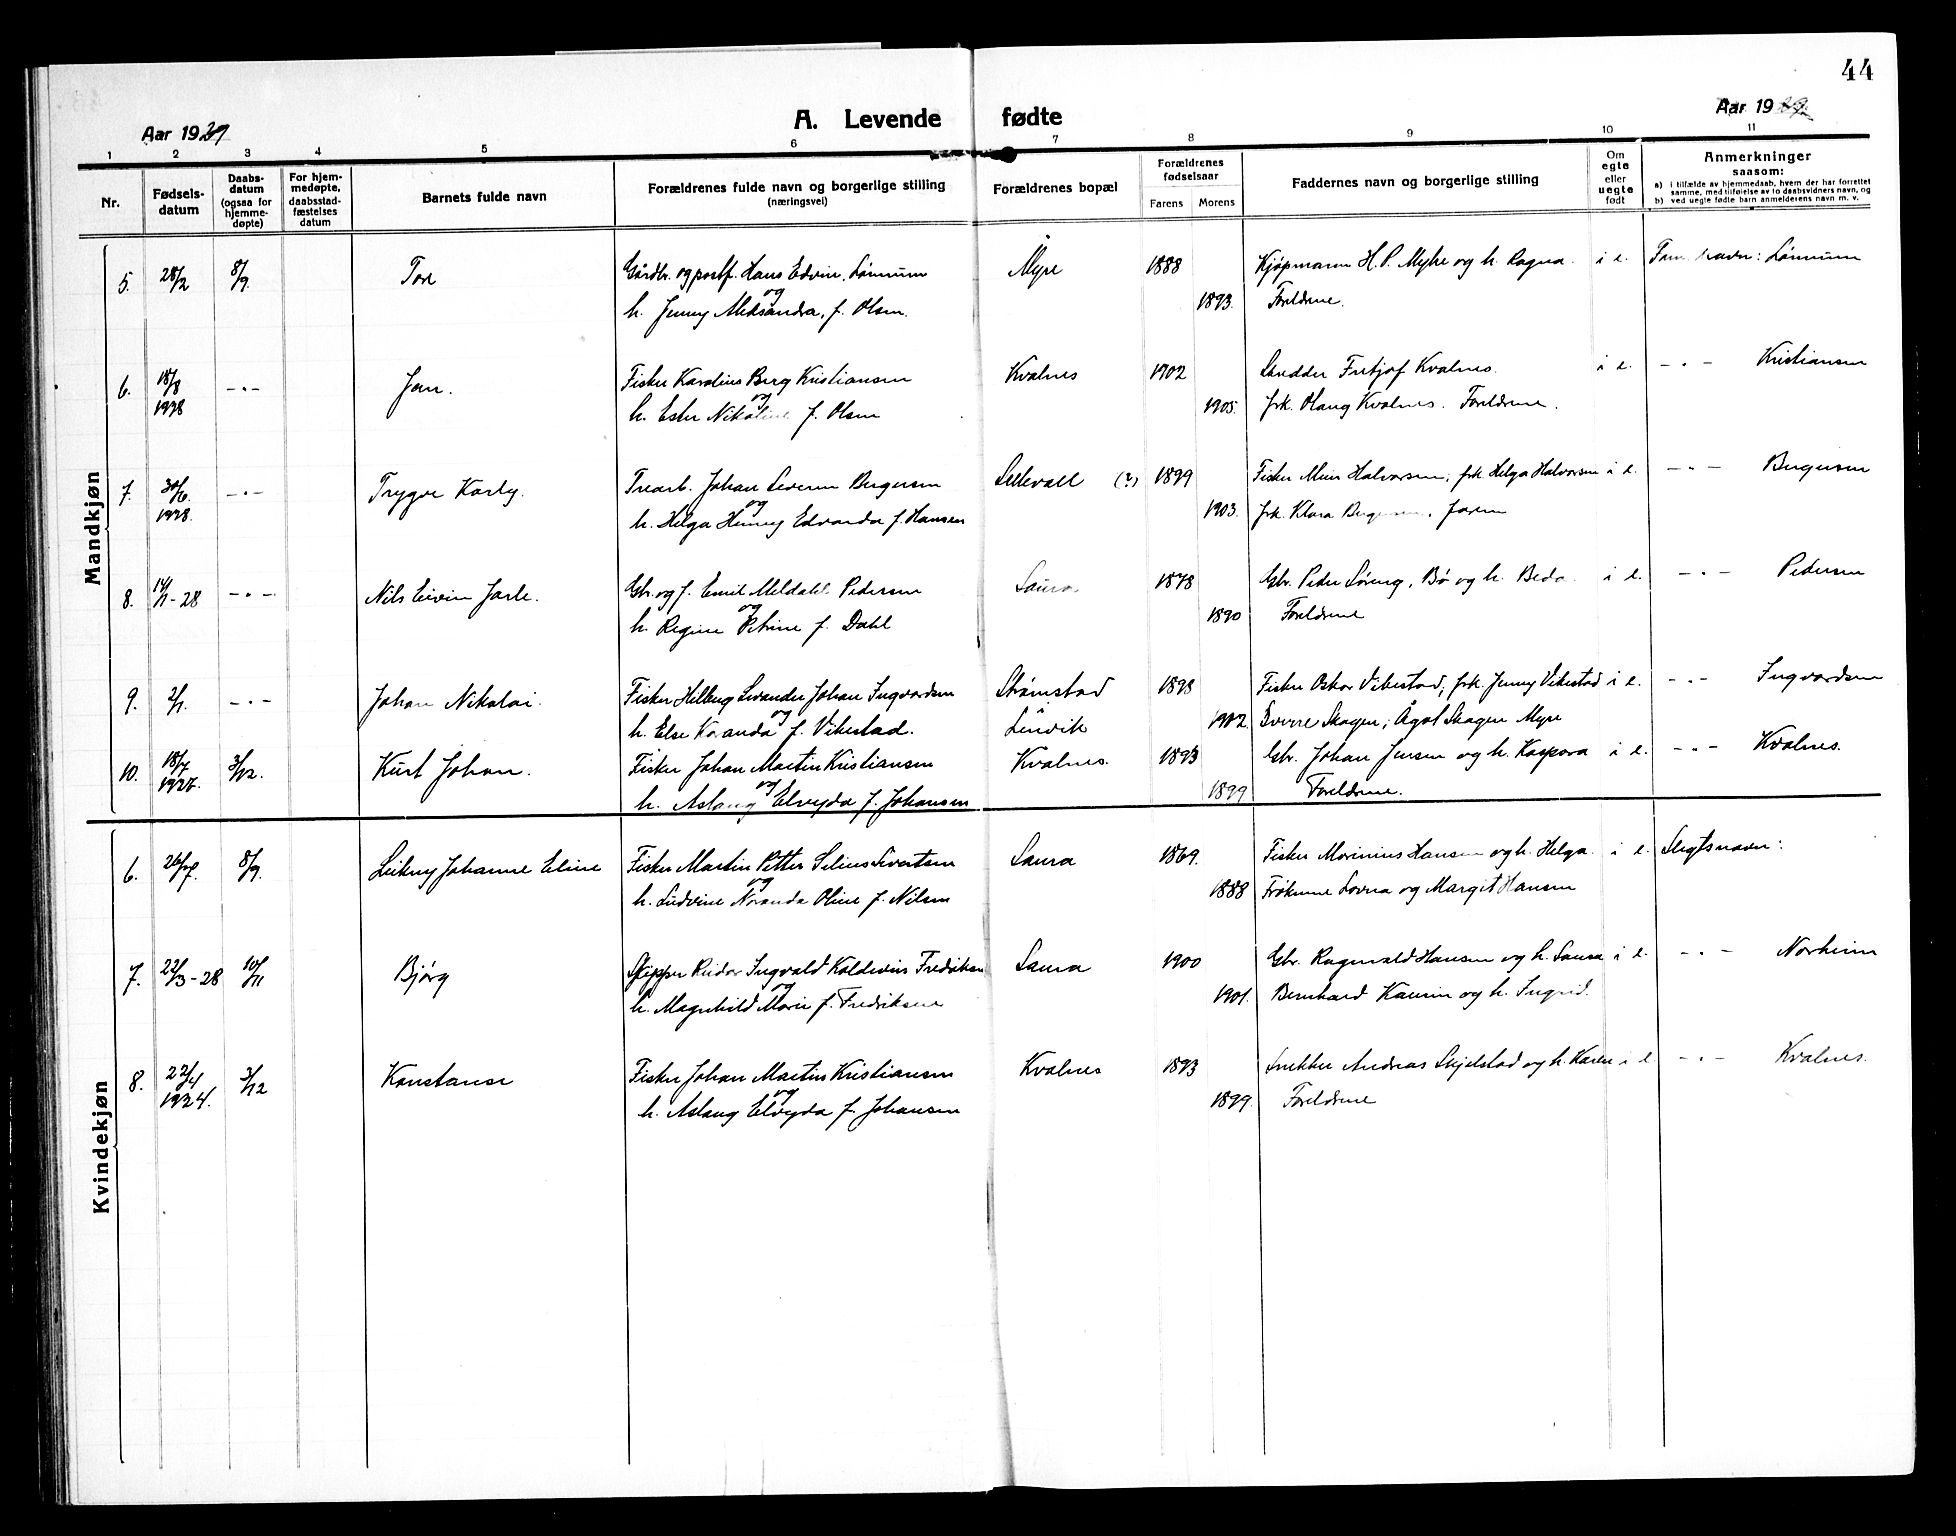 44
Aar 1929
A. Levende fødte
Aar 1929.
1 2 3 4 5 6 7 8 9 10 11
Nr.
Fødsels-
datum
Daabs-
datum
(ogsaa for
hjemme-
døpte)
For hjem-
medøpte,
daabsstad-
fæstelses
datum
Barnets fulde navn
Forældrenes fulde navn og borgerlige stilling
(næringsvei)
Forældrenes bopæl
Forældrenes
fødselsaar
Farens Morens
Faddernes navn og borgerlige stilling
Om
egte
eller
uegte
født
Anmerkninger
saasom:
a) i tilfælde av hjemmedaab, hvem der har forrettet
samme, med tilføielse av to daabsvidners navn, og
b) ved uegte fødte barn anmelderens navn m. v.
Mandkjøn
5. 28/2 8/9. Tor Gårdbr. og postf. Hans Edvin Lønnum Myre 1888 Kjøpmann H. P. Myhre og h. Ragna. i e. Fam. navn: Lønnum
og
h. Jenny Aleksandra, f. Olsen. 1893. Foreldrene.
6. 18/8 1928 -"- Jan. Fisker Karolius Berg Kristiansen Kvalnes 1902 Fritjof Kvalnes. i e. -"- Kristiansen
og
h. Ester Nikoline f. Olsen 1905. frk. Olaug Kvalnes. Foreldrene.
7. 30/6. 1928. -"- Trygve Karly. Trearb. Johan Severin Bergersen (?) 1899 Fisker Halvorsen, frk. Helga Halvorsen i e. -"- Bergersen
og
h. Helga Henny Edvarda f. Hansen 1903. frk. Klara Bergersen. faren
8. 14/1-28 -"- Nils Eivin Jarle. Gbr. og f. Emil Meldahl Pedersen Saura 1878 Gbr. Peder Søreng, Bø og h. Beda. i e. -"- Pedersen
og
h. Regine Petrine f. Dahl 1890 Foreldrene
9. 2/1. -"- Johan Nikolai. Fisker Johan Ingvardsen Strømstad 1898 Fisker Oskar Vikestad, frk. Jenny Vikestad i e. -"- Ingvardsen
og
h. Else Koranda f. Vikestad. Lenvik 1902. Sverre Skagen, Ågot Skagen Myre
10. 18/7 1927. 3/12. Kurt Johan. Fisker Johan Martin Kristiansen Kvalnes. 1893 Gbr. Johan Jensen og h. Kaspara i e. -"- Kvalnes.
og
h. Aslaug Elvyda f. Johansen 1899 Foreldrene.
Kvindekjøn
6. 26/7. 8/9. Leikny Johanne Eline Fisker Martin Petter Selius Sivertsen Saura 1869. Fisker Marinius Hansen og h. Helga. i e. Slegtsnavn:
og
h. Ludvine Noranda Oline f. Nilsen 1888 Frøknene Lovna og Margit Hansen
7. 22/3-28 10/11 Bjørg Skipper Reidar Ingvald Koldevin Fredriksen Saura 1900 Gbr. Ragnvald Hansen og h. Laura i e. -"- Norheim
og
h. Magnhild Marie f. Fredriksen 1901. Bernhard og h. Ingrid.
8. 22/4 1924. 3/12 Konstanse Fisker Johan Martin Kristiansen Kvalnes 1893 Snekker Andreas Skjelstad og h. Karen i e. -"- Kvalnes.
og
h. Aslaug Elvyda f. Johansen 1899. Foreldrene